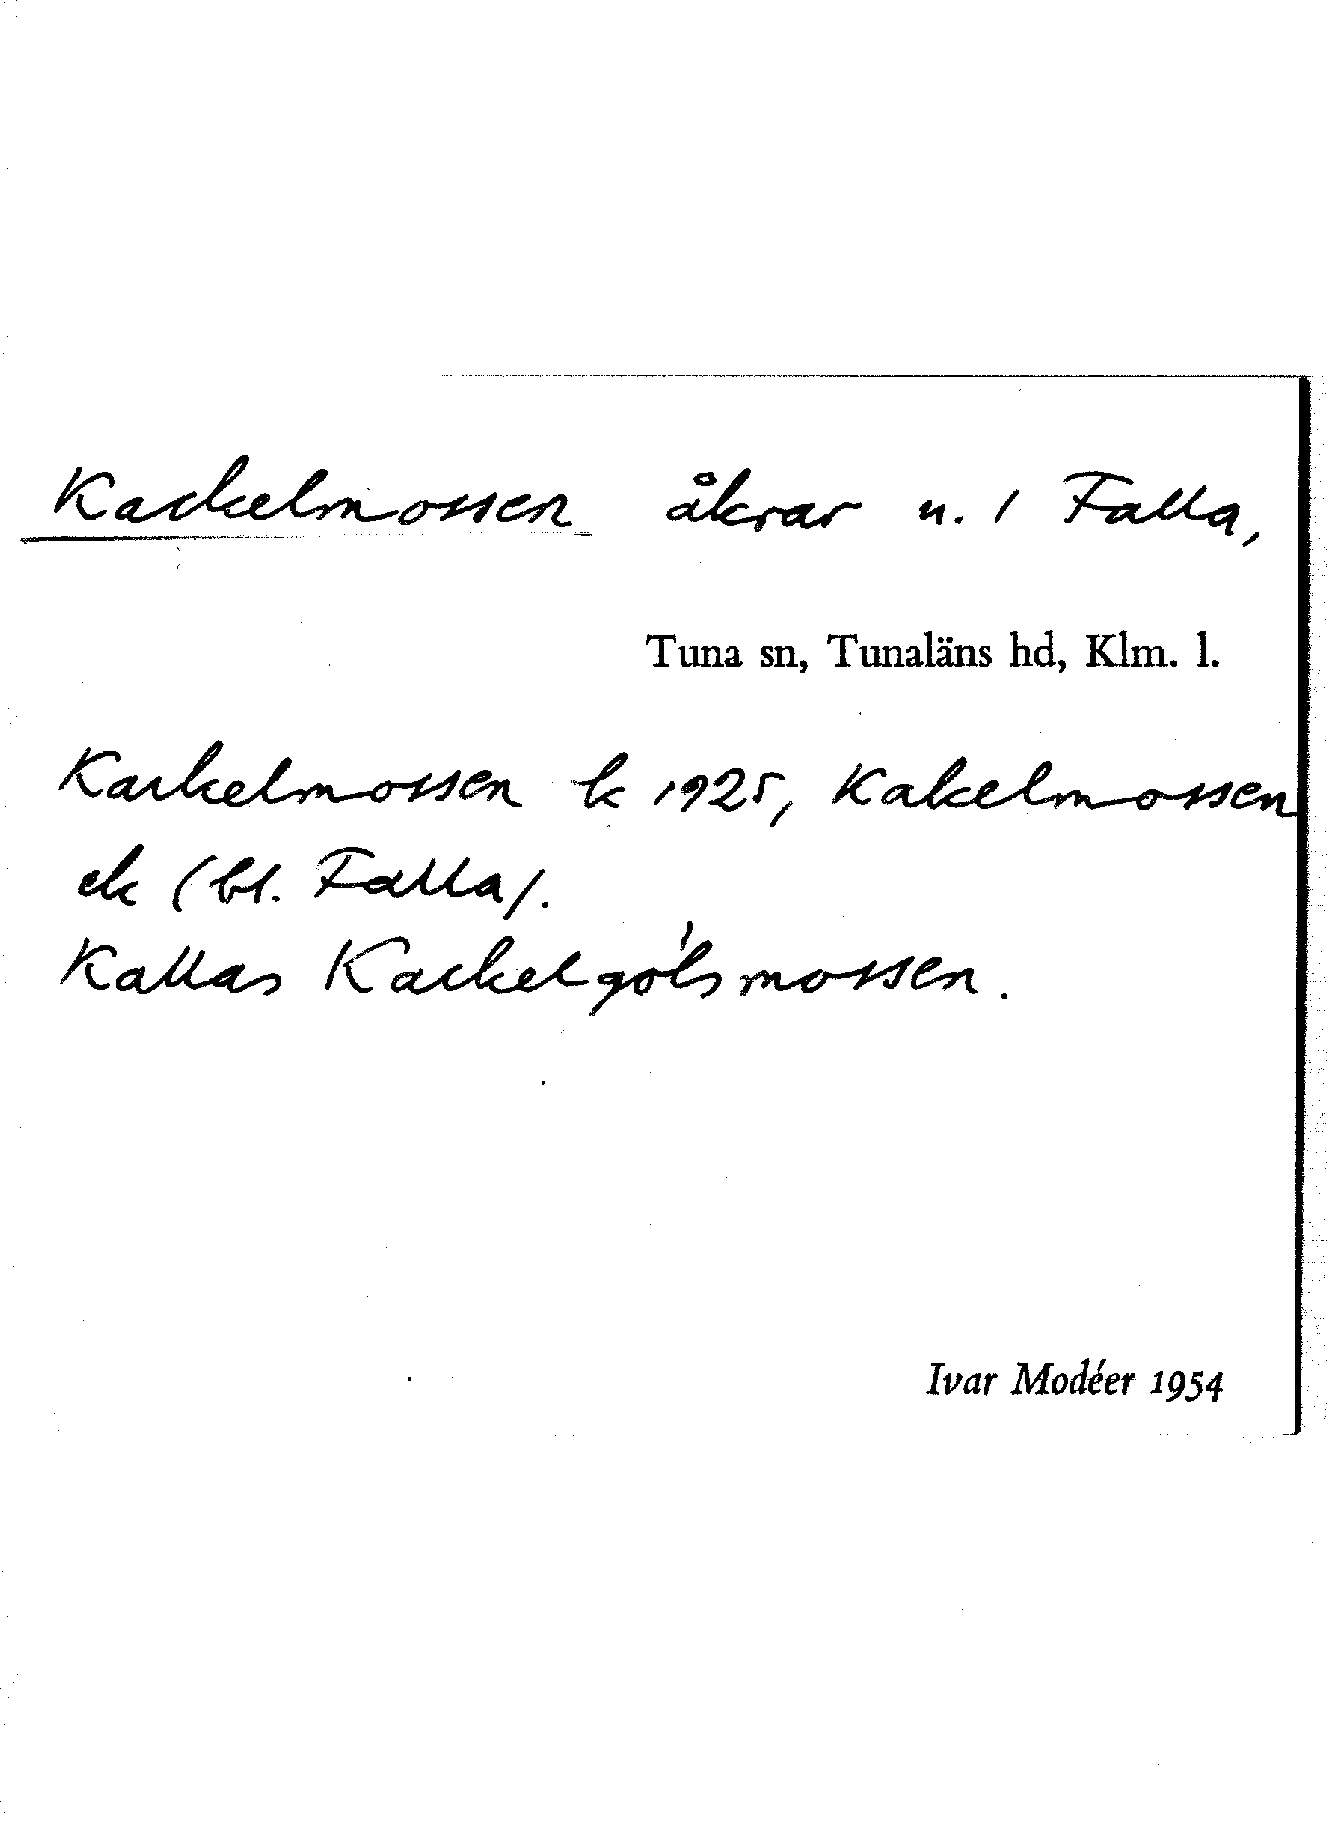 Kackelmossen åkrar u. 1 Falla,
Tuna sn, Tunaläns hd, Klm. l.
Kackelmossen k 1925, Kakelmossen
ek (bl. Falla).
Kallas Kackelgölsmossen.
Ivar Modéer 1954